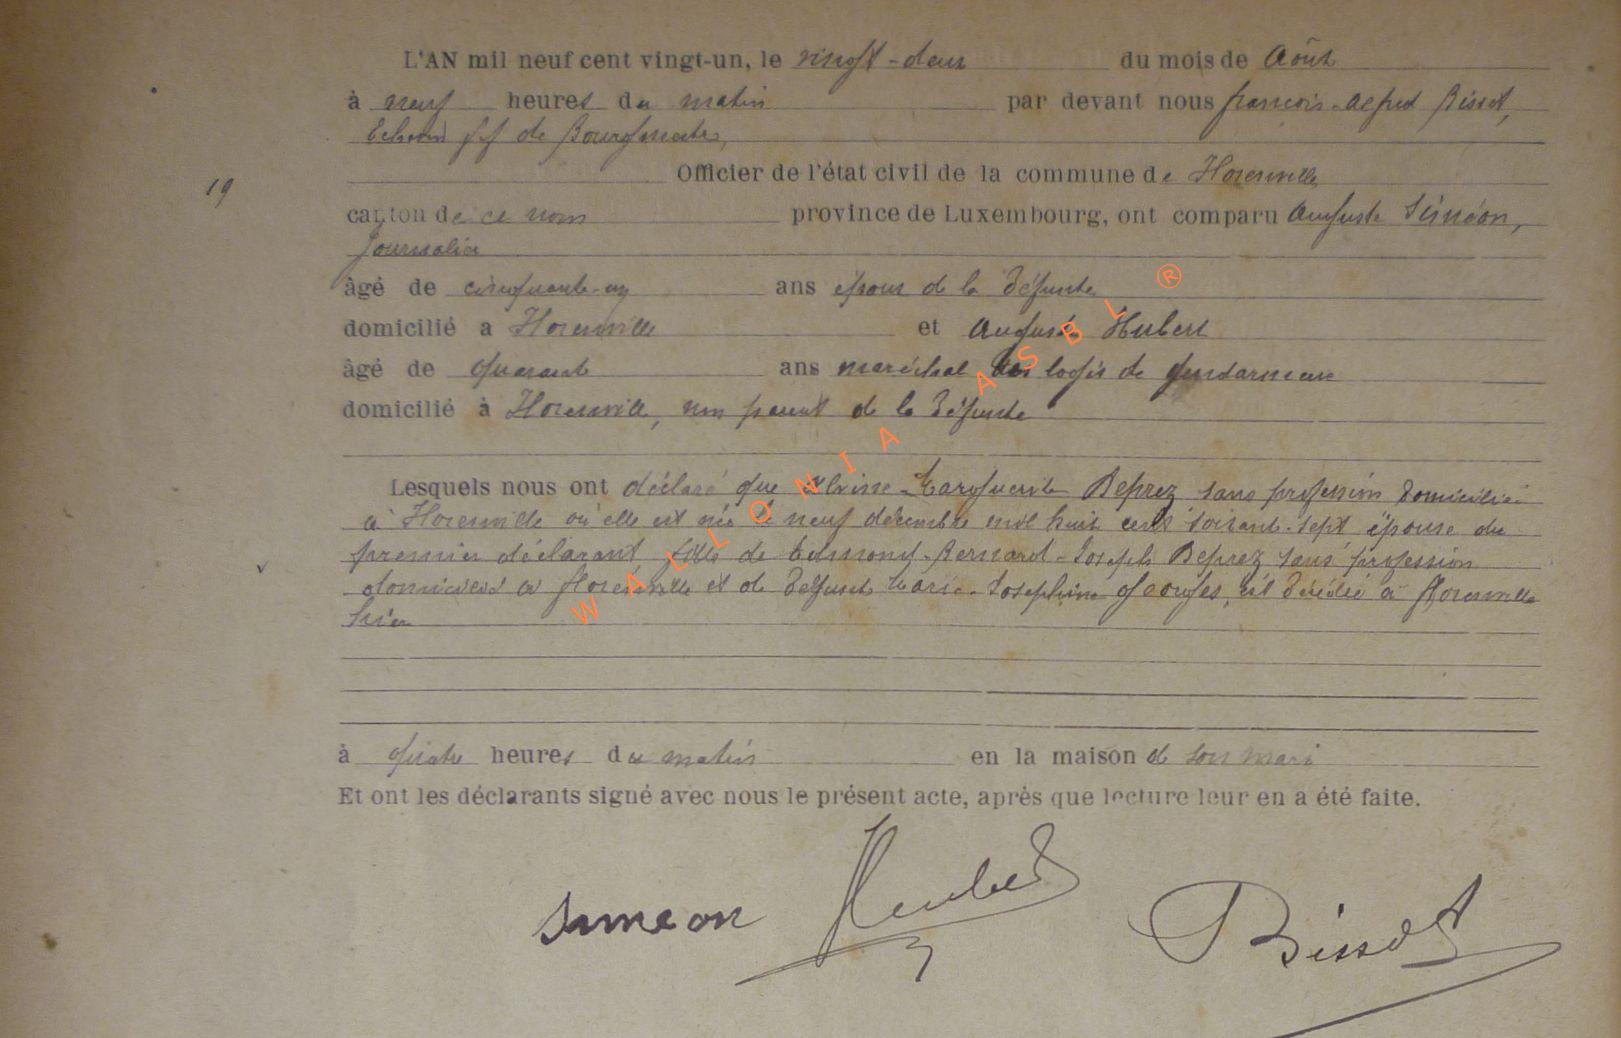 L'AN mil neuf cent vingt-un, le vingt-deux du mois de Août
à neuf heures du matin par devant nous françois-Alfred Bissot,
Echevin ff de Bourgmestre,
19 Officier de l'état civil de la commune de Florenville
canton de ce nom province de Luxembourg, ont comparu Auguste Siméon,
Journalier
âgé de cinquante-un ans époux de la défunte
domicilié a Florenville et Auguste Hubert
âgé de quarante ans maréchal des logis de gendarmerie
domicilié à Florenville, non parent de la défunte
Lesquels nous ont déclaré que Marguerite Deprez sans profession domiciliée
à Florenville où elle est née le neuf décembre mil huit cent soixante-sept épouse du
premier déclarant fille de Edmond-Bernard-Joseph Deprez sans profession
domicilié à Florenville et de défunte Marie-Joséphine Georges, est décédée à Florenville
hier
à quatre heures du matin en la maison de son mari
Et ont les déclarants signé avec nous le présent acte, après que lecture leur en a été faite.
Simeon Hubert Bissot
WALLONIA ASBL ®